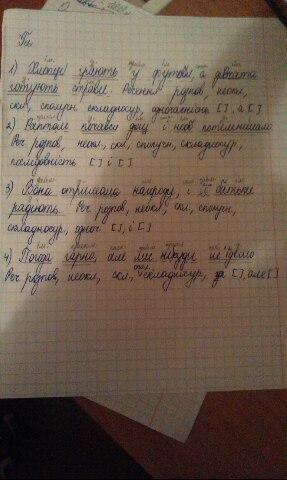 1) Хлопці грають у футбол, а дівчата
готують страви. Речення розпов, неокл,
скл, сполучн, складносур, одночасність [ ], а [ ]
2) Раптом почався дощ і небо потемнішало
Реч розпов, неокл, скл, сполучн, складносур,
послідовність [ ] і [ ]
3) Вона отримала нагороду, і її батьки
радіють. Реч розпов, неокл, скл, сполучн,
складносур, одноч [ ], і [ ]
4) Погода гарна, але ми нікуди не йдемо
Реч розпов, неокл, скл, спол, складносур, [ ], але [ ]